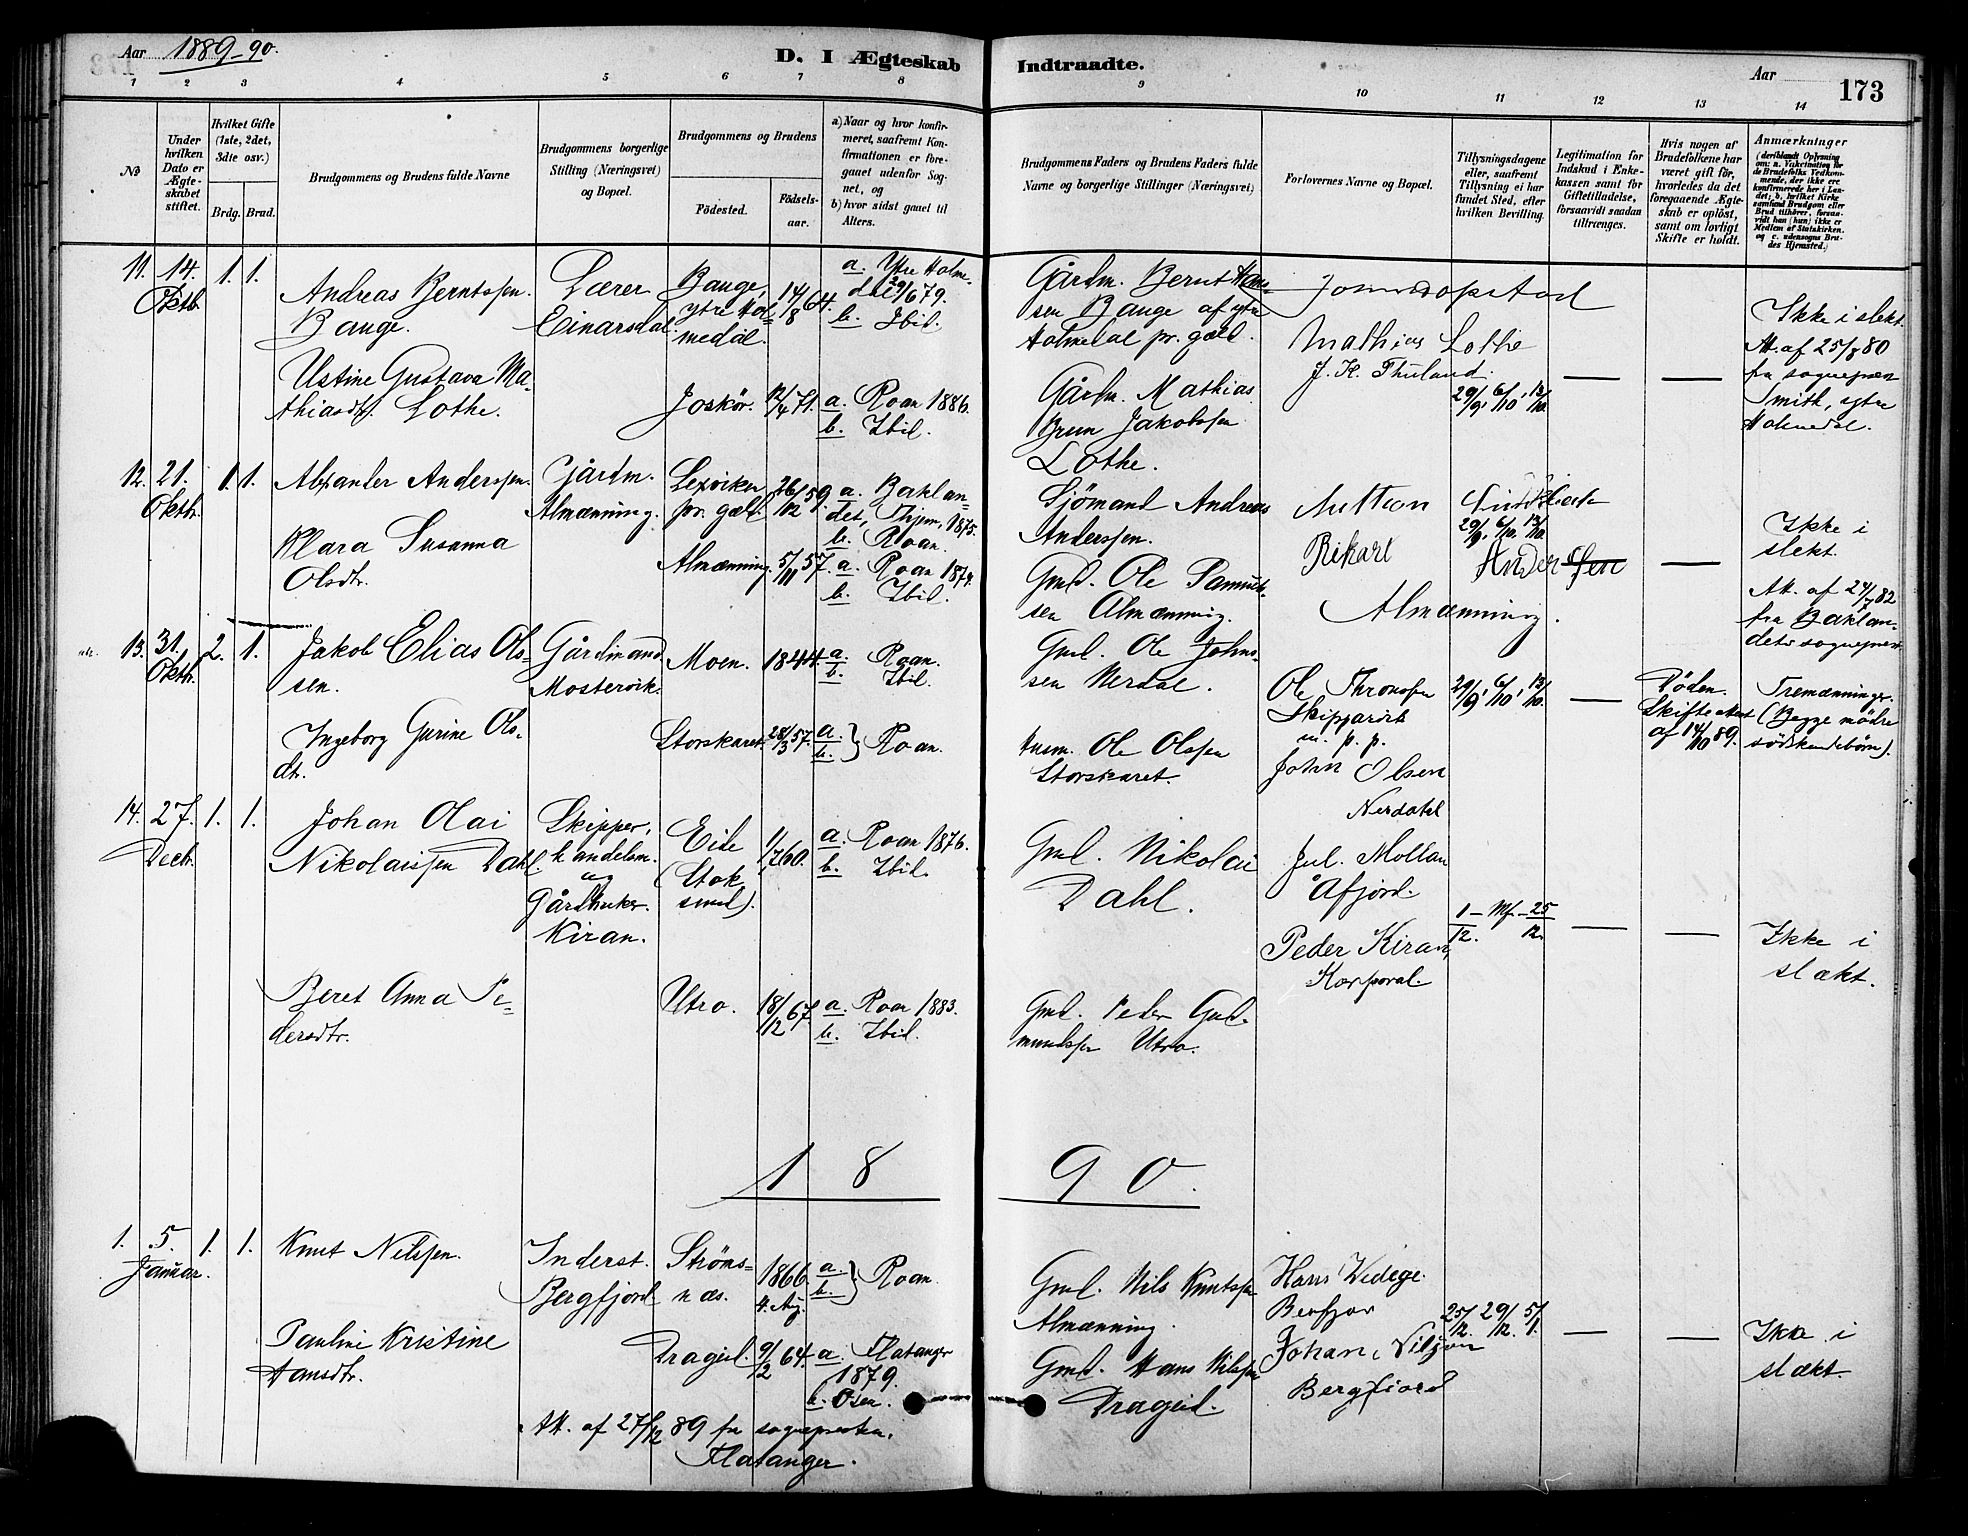 Aar 1889-90.
D. I Ægteskab Indtraadte.
Aar
173
1 2 3 4 5 6 7 8 9 10 11 12 13 14
No
Under hvilken Dato er Ægteskabet stiftet.
Hvilket Gifte (1ste, 2det, 3die osv.)
Brdg. Brud.
Brudgommens og Brudens fulde Navne
Brudgommens borgerlige Stilling (Næringsvei) og Bopæl.
Brudgommens og Brudens
Fødested.
Fødselsaar.
a) Naar og hvor konfirmeret, saafremt Konfirmationen er foregaaet udenfor Sognet, og
b) hvor sidst gaaet til Alters.
Brudgommens Faders og Brudens Faders fulde Navne og borgerlige Stillinger (Næringsvei)
Forlovernes Navne og Bopæl.
Tillysningsdagene eller, saafremt Tillysning ei har fundet Sted, efter hvilken Bevilling.
Legitimation for Indskud i Enkekassen samt for Giftetilladelse, forsaavidt saadan tiltrænges.
Hvis nogen af Brudefolkene har været gift før, hvorledes da det foregaaende Ægteskab er opløst, samt om lovligt Skifte er holdt.
Anmærkninger
(deriblandt Oplysning om: a. Vakcination for de Brudefolks Vedkommende, der ikke ere konfirmerede her i Landet; b. hvilket Kirkesamfund Brudgom eller Brud tilhører, forsaavidt han (hun) ikke er Medlem af Statskirken, og c. udensogns Brudes Hjemsted.)
11. 14. Oktb. 1. 1.
Andreas Berntssen Bauge.
Lærer Einarsdal.
Bauge, ytre Holmedal.
14/8 64.
a. Ytre Holmedal 29/6 79.
b. Ibid.
Gårdm. Bernt Hanssen Bauge af ytre Holmedal pr. gæld.
Mathias Lothe
J. H. Thuland.
29/9, 6/10, 13/10.
— —
Ikke i slekt.
At. af 25/8 80 fra sognepræst Smith, ytre Holmedal.
Ustine Gustava Mathiasdtr. Lothe.
Joskör. 12/4 71.
a. Roan 1886.
b. Ibid.
Gårdm. Mathias Brun Jakobssen Lothe.
12. 21. Oktbr. 1. 1.
Alexander Anderssen.
Gårdm. Almænning.
Lexviken pr. gæld.
26/12 59.
a. Baklandet, Thjem, 1875.
b. Roan.
Sjömand Andreas Anderssen.
29/9, 6/10, 13/10.
Rikart Andersen
Almænning.
—
Ikke i slekt.
At. af 24/7 82 fra Baklandets sognepræst
Klara Susanna Olsdtr.
Almænning. 5/11 57.
a. Roan 1874.
b. Ibid.
Gmd. Ole Samuelssen Almænning.
13. 31. Oktbr. 2. 1.
Jakob Elias Olssen.
Gårdmand Mostervik.
Moen. 1844.
a. Roan.
b. Ibid.
Gmd. Ole Johnssen Nerdal.
Ole Thronsen Skjpparvik
m. p. p.
John Olsen Nerdatel
29/9, 6/10, 13/10.
—
Døden. Skifteattest af 14/10 89.
Tremænninger (Begge mødre södskendebörn).
Ingeborg Gurine Olsdtr.
Storskaret. 28/3 57.
a. b. } Roan.
Husm. Ole Olssen Storskaret.
14. 27. Decbr. 1. 1.
Johan Olai Nikolaissen Dahl.
Skipper, handelsm. og Gårdbruker. Kiran.
Eide (Stoksund).
1/7 60.
a. Roan 1876.
b. Ibid.
Gmd. Nikolai Dahl.
Jul. Mollan Åfjord.
Peder Kiran, Korporal.
1/12. – Mf – 25/12.
— —
Ikke i slækt.
Beret Anna Pedersdtr.
Utro. 18/12 67.
a. Roan 1883.
b. Ibid.
Gmd. Peder Gudmundssen Utro.
1 8 9 0.
1. 5. Januar. 1. 1.
Knut Nilssen.
Inderst. Bergfjord
Strömsnæs.
1866 4. Aug.
a. b. } Roan.
Gmd. Nils Knutssen Almænning.
Hans Widege. Berfjor
Johan Nilsen Bergfjord
25/12. 29/12. 5/1.
— —
Ikke i slækt.
Pauline Kristine Hansdtr.
Drageid. 9/2 64.
a. Flatanger 1879.
b. Osen.
Gmd. Hans Nilssen Drageid.
At. af 27/12 89 fra sognepresten, Flatanger.